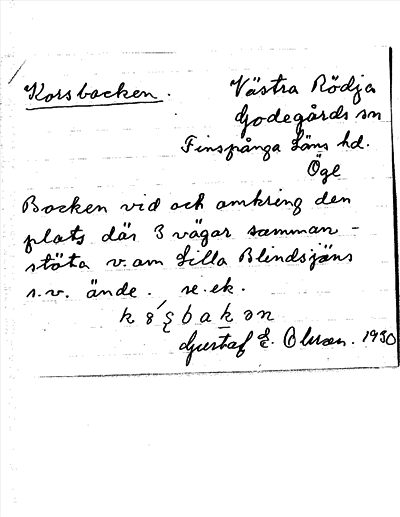 Korsbacken. Västra Rödja
Godegårds sn
Finspånga Läns hd.
Ögl
Backen vid och omkring den
plats där 3 vägar samman-
stöta v. om Lilla Blindsjäns
s.v. ände. se. ek.
Gustaf E. Olsson. 1930